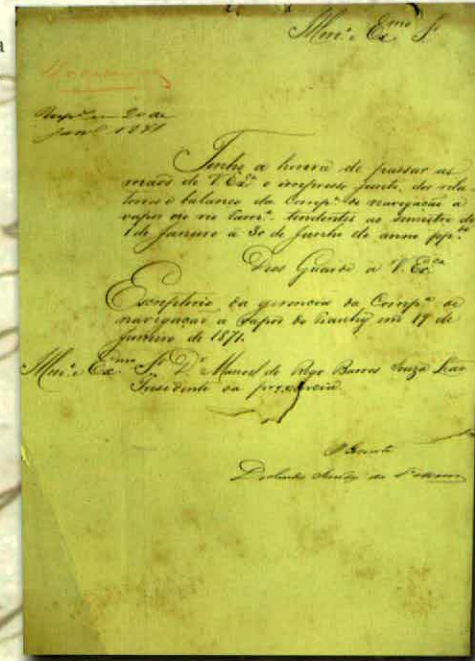 a
Illm.º e Exmo Sr.
Resp.ª em 20 de
Jan.º 1871
Tenho a honra de passar as
mãos de V. Ex.ª o impresso junto, dos rela
torios e balanço da Comp.ª de navegação a
vapor do rio Parn.ª tendentes ao semestre de
1 de Janeiro a 30 de Junho do anno pp.do
Deos Guarde a V. Ex.cia
Escriptorio da gerencia da Comp.ª de
navegação a vapor do Piauhy em 19 de
Janeiro de 1871.
Illm.º e Exmo Sr. Dr. Manoel do Rego Barros Souza Leão
Presidente da provincia
O Gerente
da